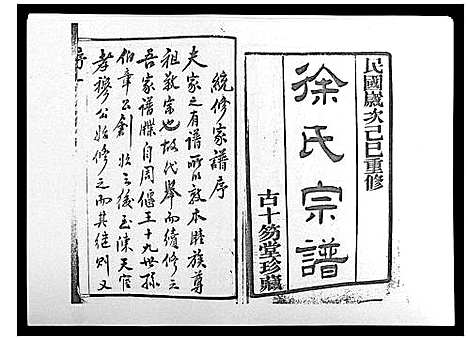 民國歲次己巳重修
徐氏宗譜
古十笏堂珍藏
續修家譜序
夫家之有譜所以敦本睦族尊
祖敬宗也故代舉而續修之
吾家譜牒自周偃王十九世孫
伯章公創始之後至陳天官
孝穆公始修之而其繼則又